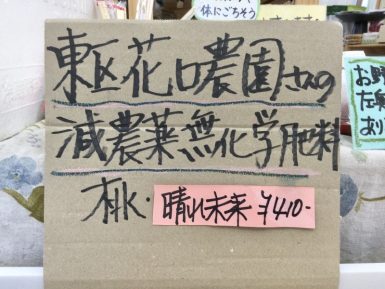 体にごちそう
東区花口農園さんの
減農薬無化学肥料
桃・晴れ未来 ¥410-
お野
左側
あり